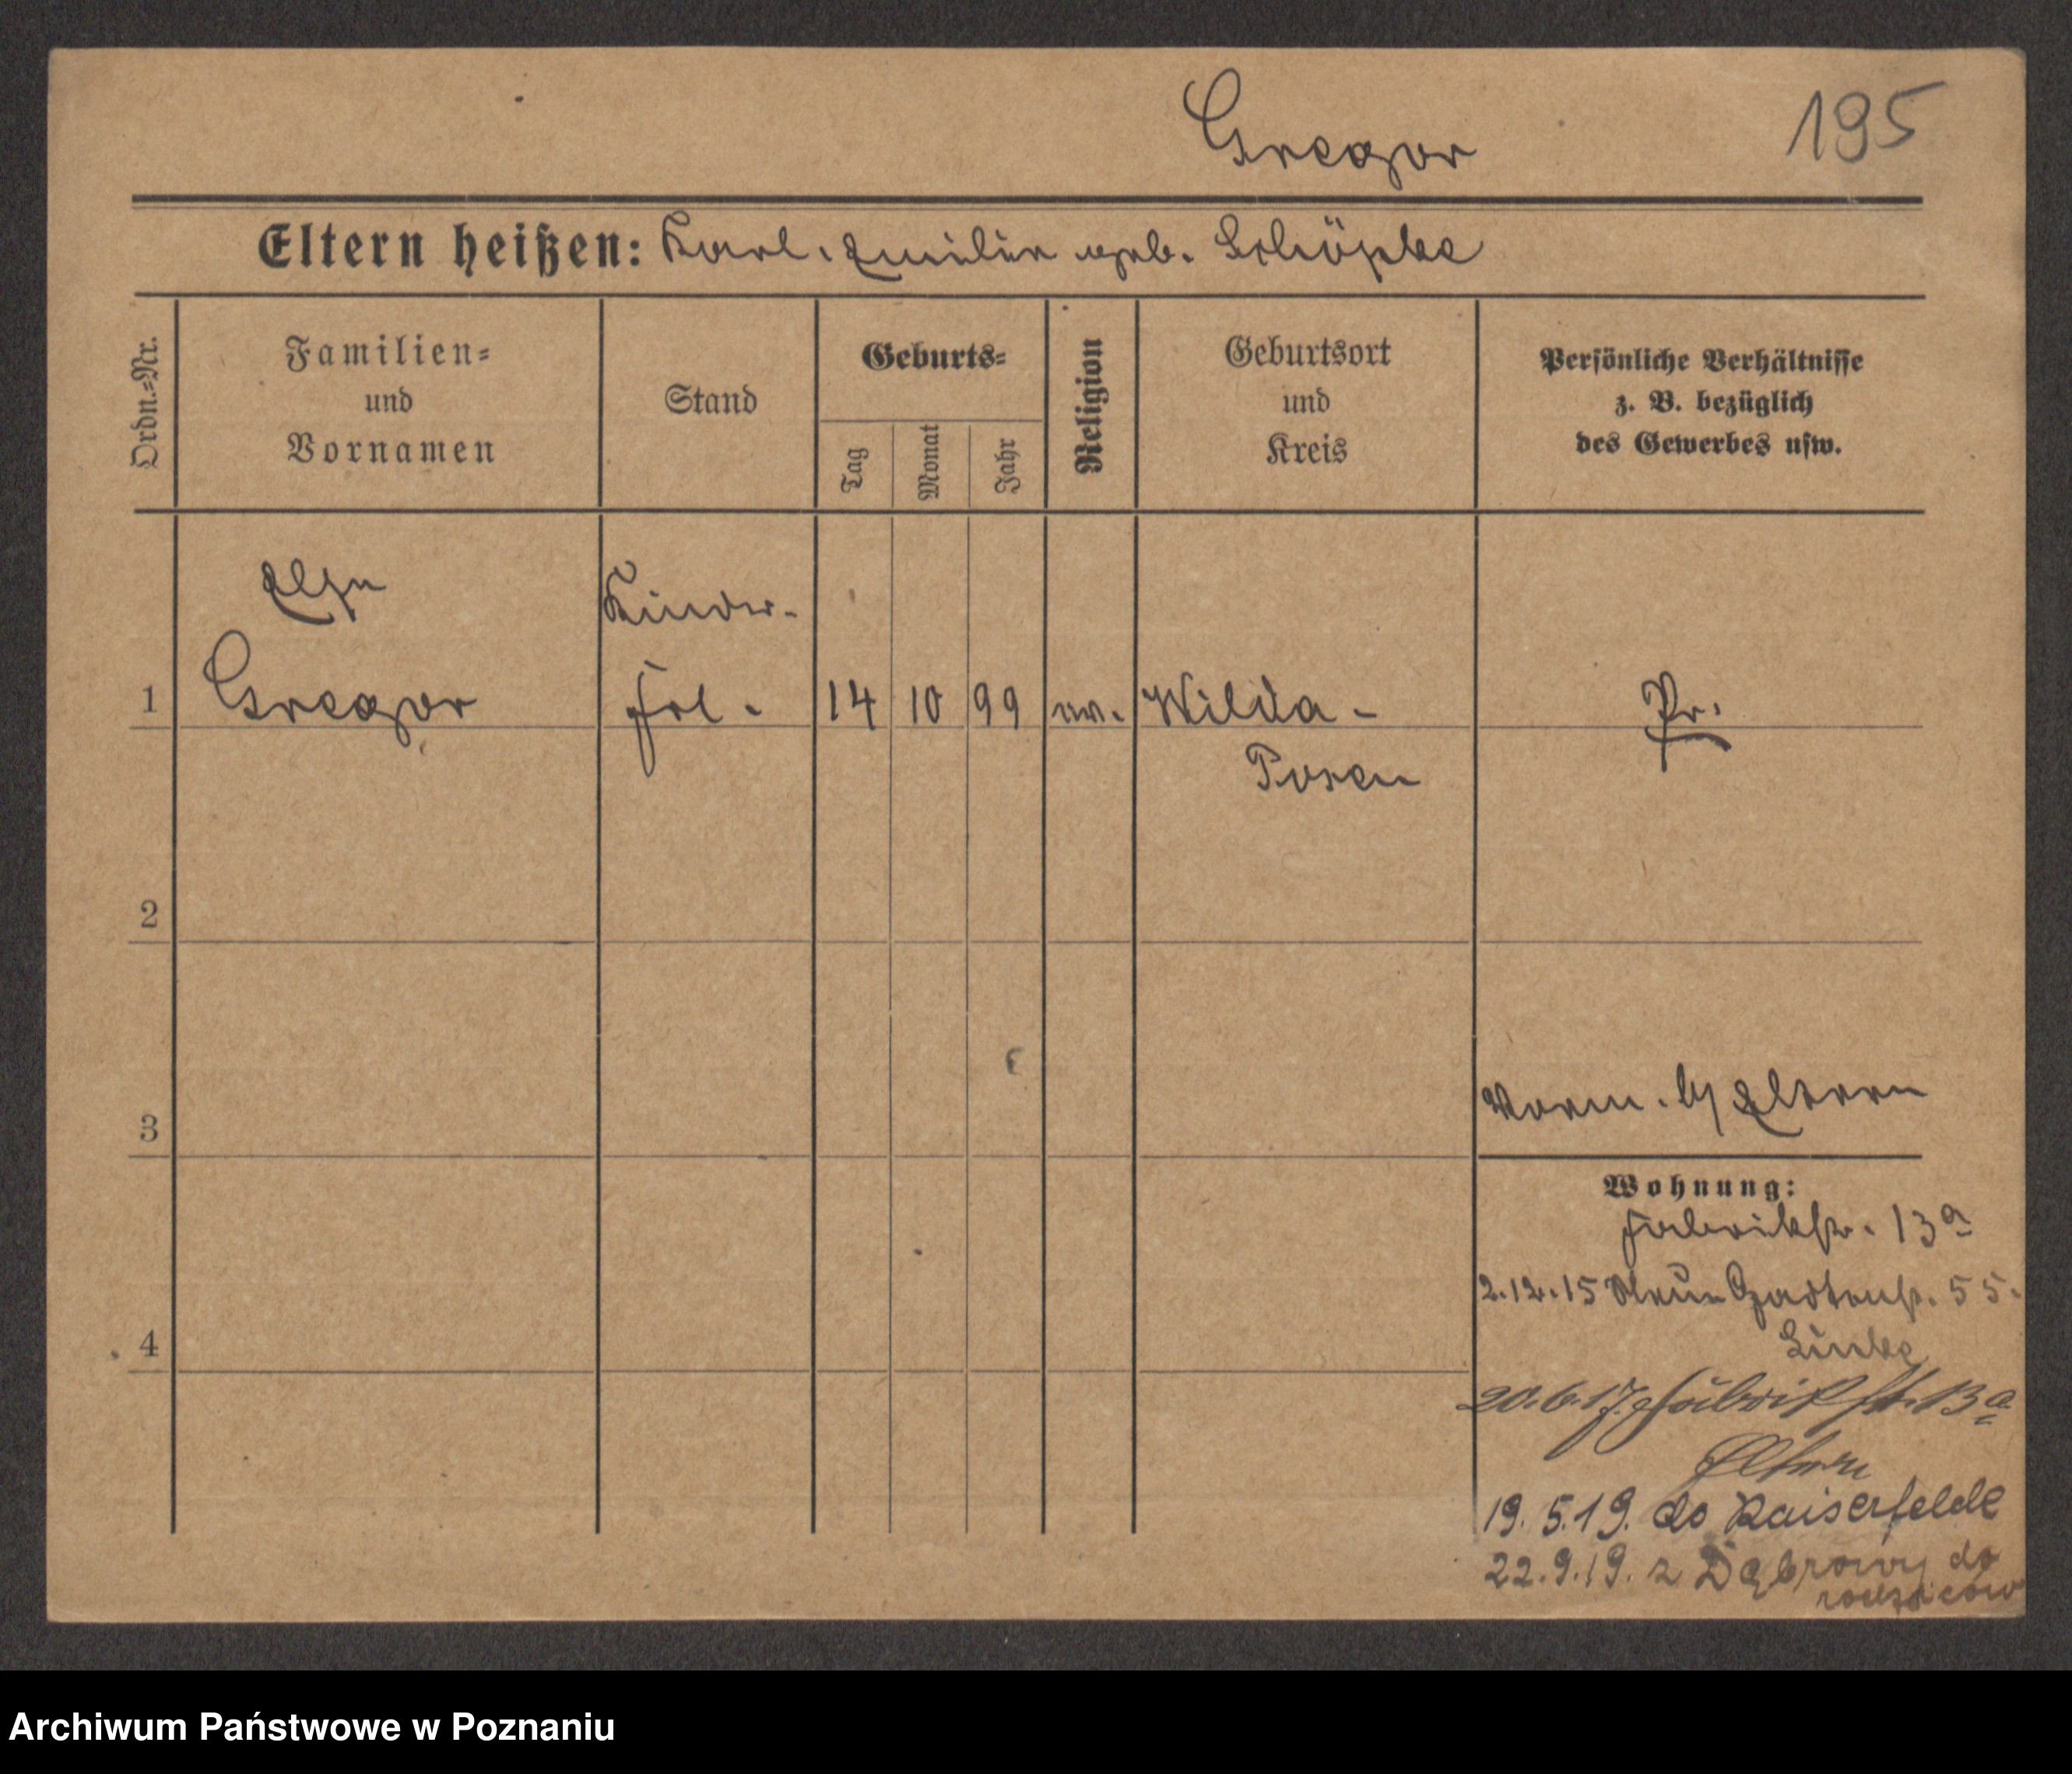 Gregor
195
Eltern heißen: Karl, Emilie geb. Schöpke
Ordn.=Nr.
Familien=
und
Vornamen
Stand
Geburts=
Tag
Monat
Jahr
Religion
Geburtsort
und
Kreis
Persönliche Verhältnisse
z. B. bezüglich
des Gewerbes usw.
Kinder-
1 Gregor frl. 14 10 99 ev. Wilda-
Pr.
Posen
2
3
Vorm. b/ Eltern
Wohnung:
Fabrikstr. 13a
2.12.15 Neue Gartenstr. 55.
4
Linke
20.6.17. Fabrikstr. 13a
Eltern
19.5.19. do Kaiserfelde
22.9.19. z Dąbrowy do
rodziców
Archiwum Państwowe w Poznaniu